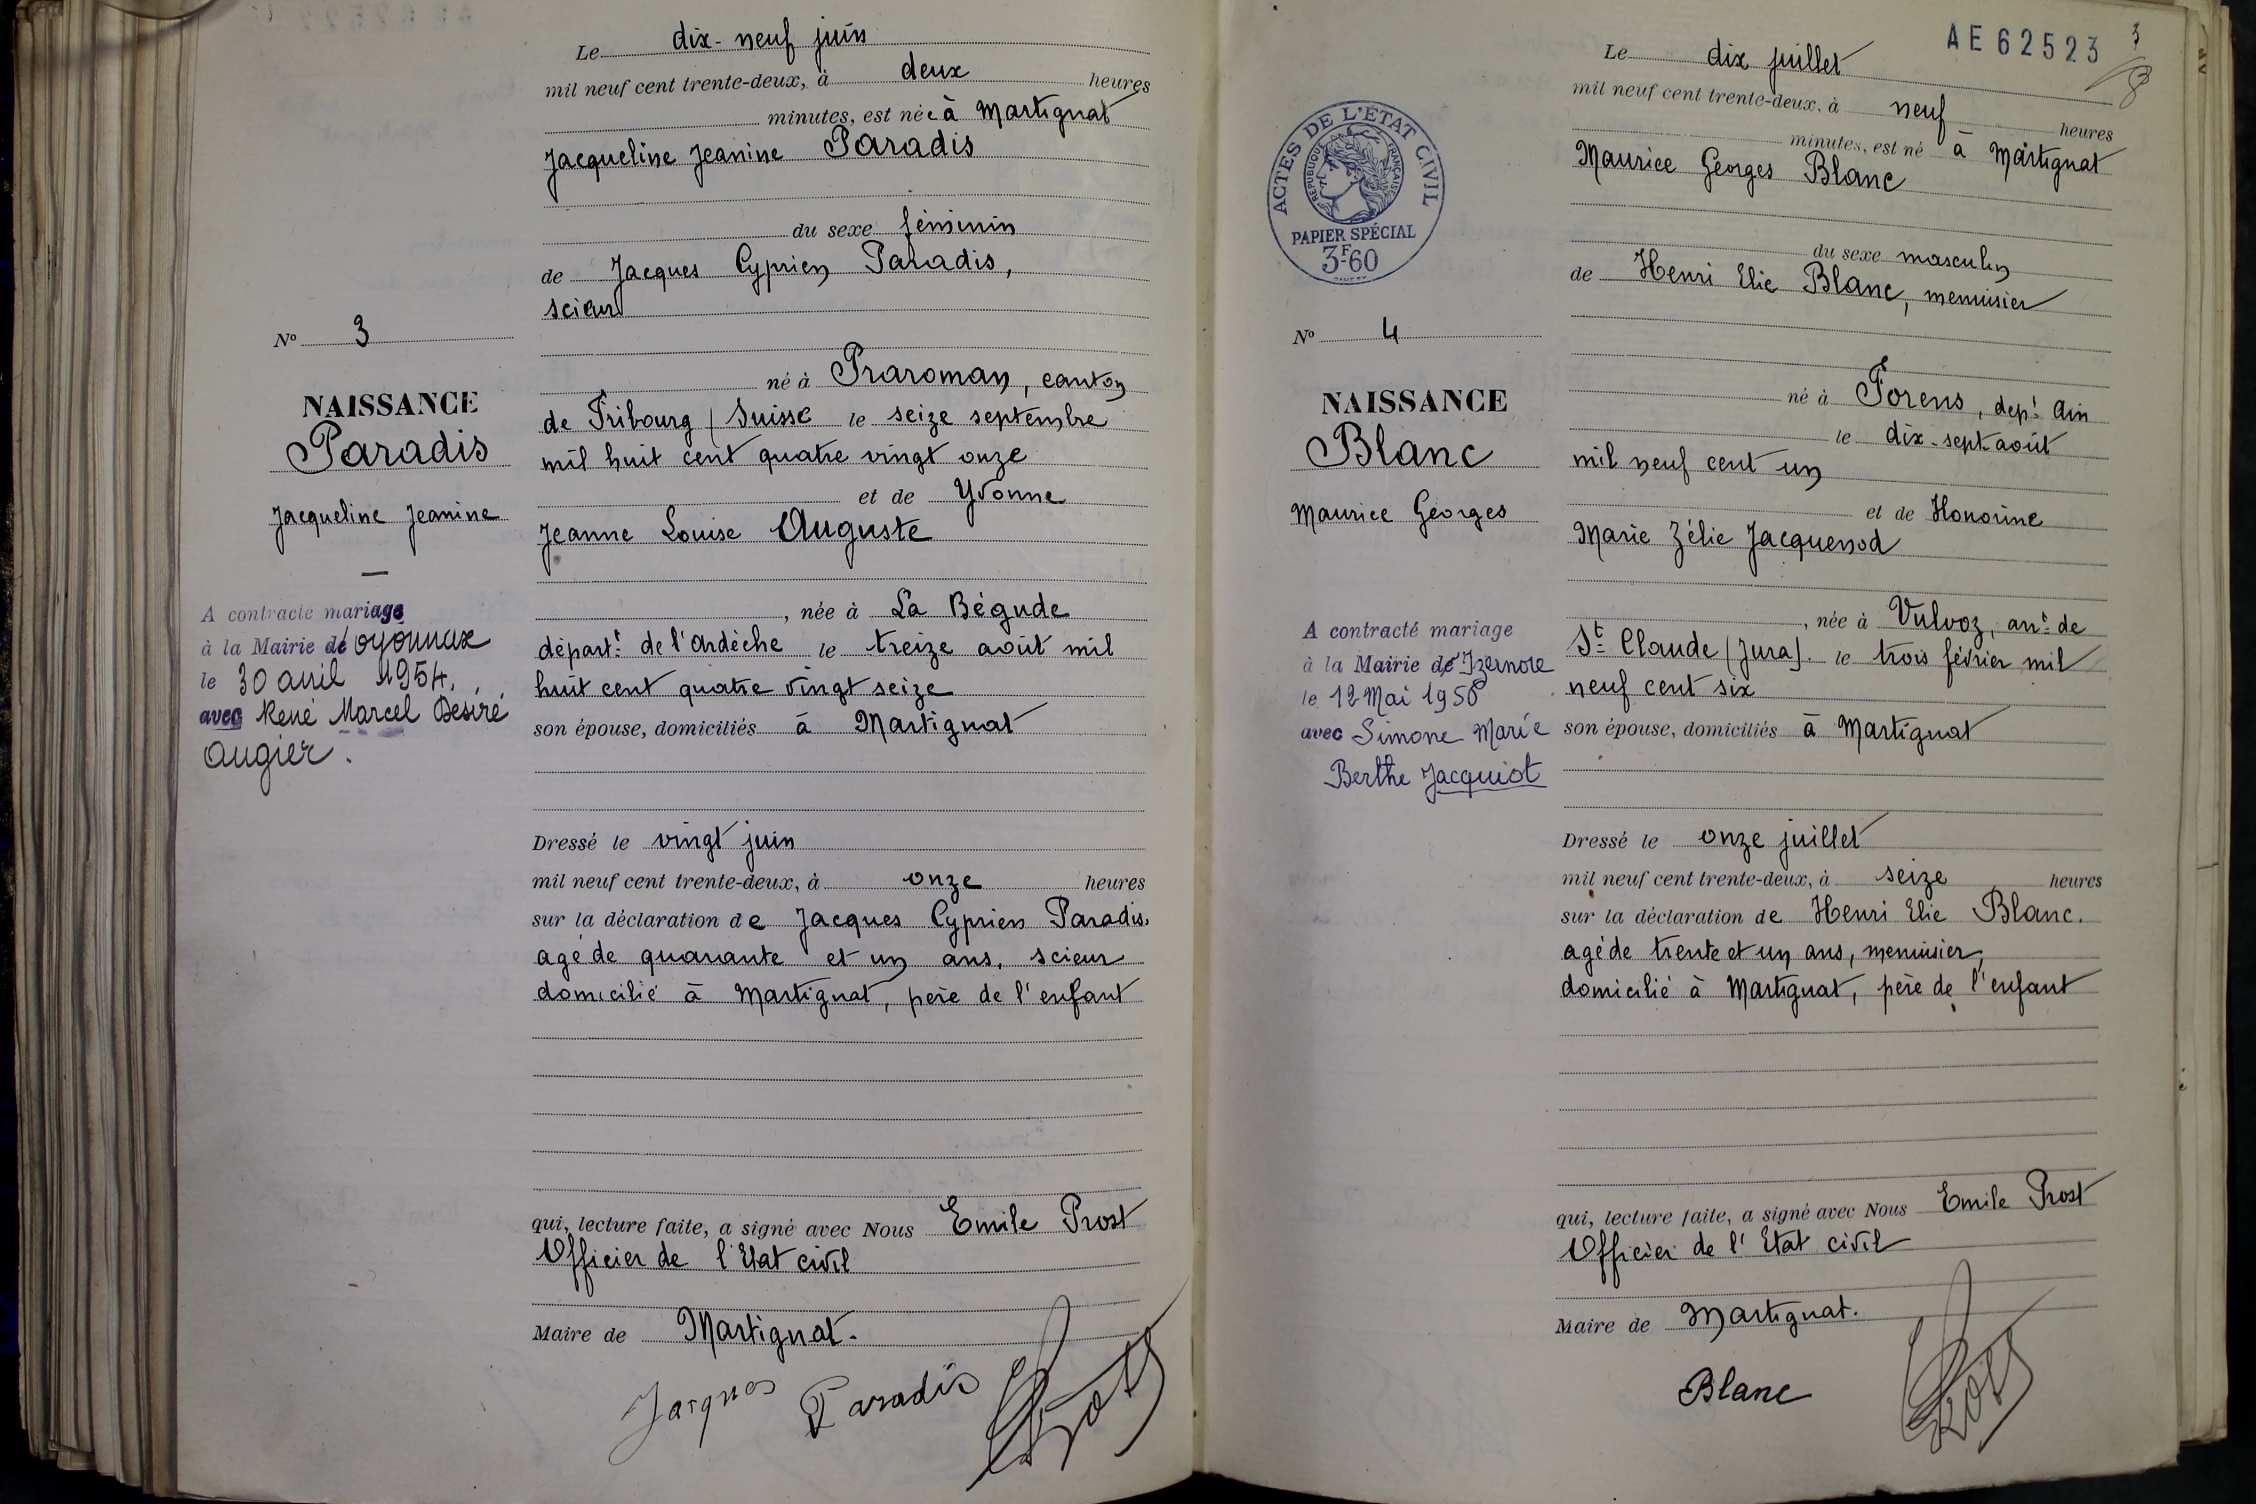 Le dix-neuf juin
mil neuf cent trente-deux, à deux heures
minutes, est née à Martignat
Jacqueline Jeanine Paradis
du sexe féminin
de Jacques Cyprien Paradis,
scieur
né à Praroman, canton
de Fribourg (Suisse le seize septembre
mil huit cent quatre vingt onze
et de Yvonne
Jeanne Louise Auguste
, née à La Bégude
départt de l'Ardèche le treize août mil
huit cent quatre vingt seize
son épouse, domiciliés à Martignat
Dressé le vingt juin
mil neuf cent trente-deux, à onze heures
sur la déclaration de Jacques Cyprien Paradis,
agé de quarante et un ans, scieur
domicilié à Martignat, père de l'enfant
qui, lecture faite, a signé avec Nous Emile Prost
Officier de l'Etat civil
Maire de Martignat.
Jacques Paradis Prost
No 3
NAISSANCE
Paradis
Jacqueline Jeanine
A contracté mariage
à la Mairie d'Oyonnax
le 30 avril 1954.
avec René Marcel Désiré
Augier.
AE62523
3
Le dix juillet
mil neuf cent trente-deux, à neuf heures
minutes, est né à Martignat
Maurice Georges Blanc
du sexe masculin
de Henri Elie Blanc, menuisier
né à Forens, dept Ain
le dix-sept août
mil neuf cent un
et de Honorine
Marie Zélie Jacquenod
, née à Vulvoz, arrt de
St Claude (Jura). le trois février mil
neuf cent six
son épouse, domiciliés à Martignat
Dressé le onze juillet
mil neuf cent trente-deux, à seize heures
sur la déclaration de Henri Elie Blanc.
agé de trente et un ans, menuisier,
domicilié à Martignat, père de l'enfant
qui, lecture faite, a signé avec Nous Emile Prost
Officier de l'Etat civil
Maire de Martignat.
Blanc Prost
ACTES DE L'ETAT CIVIL
REPUBLIQUE FRANÇAISE
PAPIER SPÉCIAL
3F60
No 4
NAISSANCE
Blanc
Maurice Georges
A contracté mariage
à la Mairie d'Izernore
le 12 Mai 1956
avec Simone Marie
Berthe Jacquiot